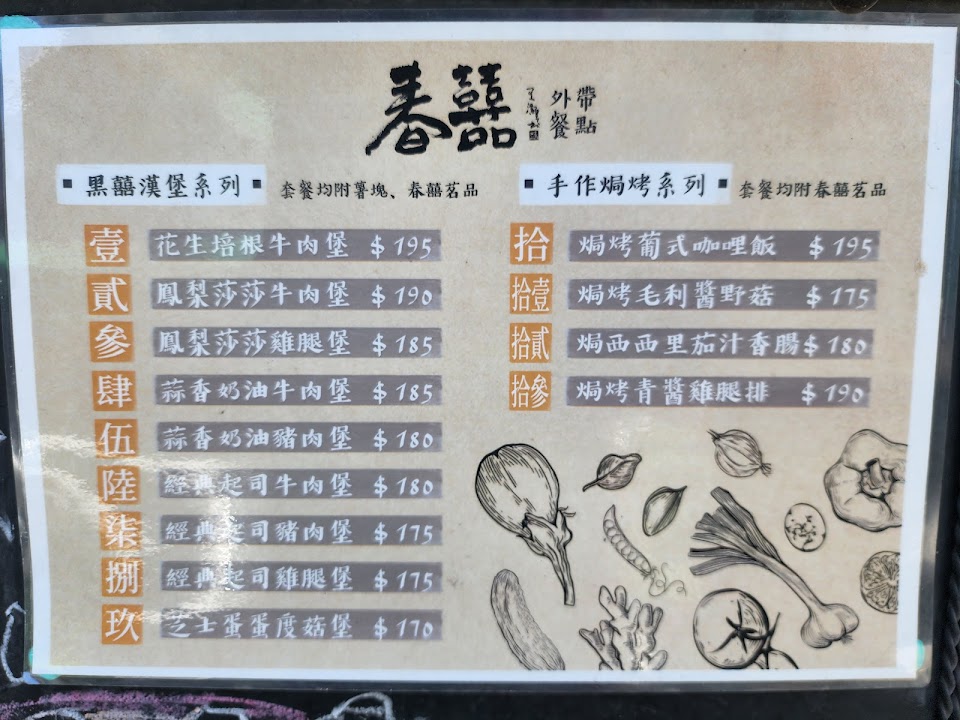 春囍
外帶
餐點
黑囍漢堡系列
套餐均附薯塊、春囍茗品
壹 花生培根牛肉堡 $195
貳 鳳梨莎莎牛肉堡 $190
參 鳳梨莎莎雞腿堡 $185
肆 蒜香奶油牛肉堡 $185
伍 蒜香奶油豬肉堡 $180
陸 經典起司牛肉堡 $180
柒 經典起司豬肉堡 $175
捌 經典起司雞腿堡 $175
玖 芝士蛋蛋度菇堡 $170
手作焗烤系列
套餐均附春囍茗品
拾 焗烤葡式咖哩飯 $195
拾壹 焗烤毛利醬野菇 $175
拾貳 焗西西里茄汁香腸 $180
拾參 焗烤青醬雞腿排 $190